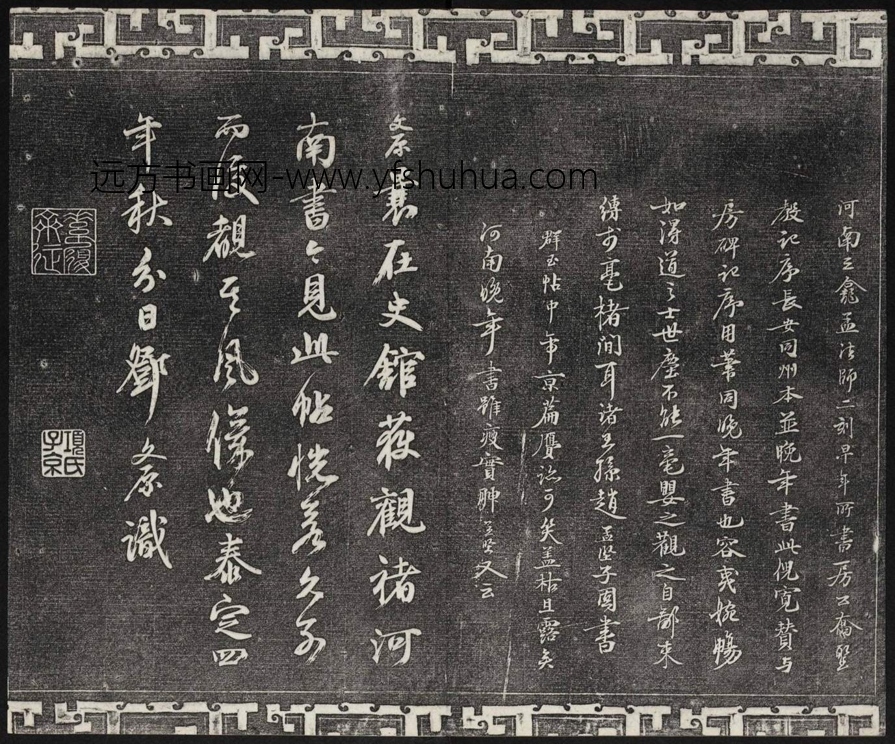 河南三龕孟法師二刻早年所書房公喬聖
教記序長安同州本並晚年書此倪寬贊与
房碑記序用筆同晚年書也容夷婉暢
如得道之士世塵不能一毫嬰之觀之自鄙束
縛於毫楮間耳諸王孫趙孟堅子固書
群玉帖中帝京篇贋跡可笑蓋枯且露矣
河南晚年書雖瘦實腴孟堅又云
文原曩在史館獲觀褚河
南書今見此帖恍若久別
而復覩其風儀也泰定四
年秋分日鄧文原識
項氏子京
远方书画网-www.yfshuhua.com